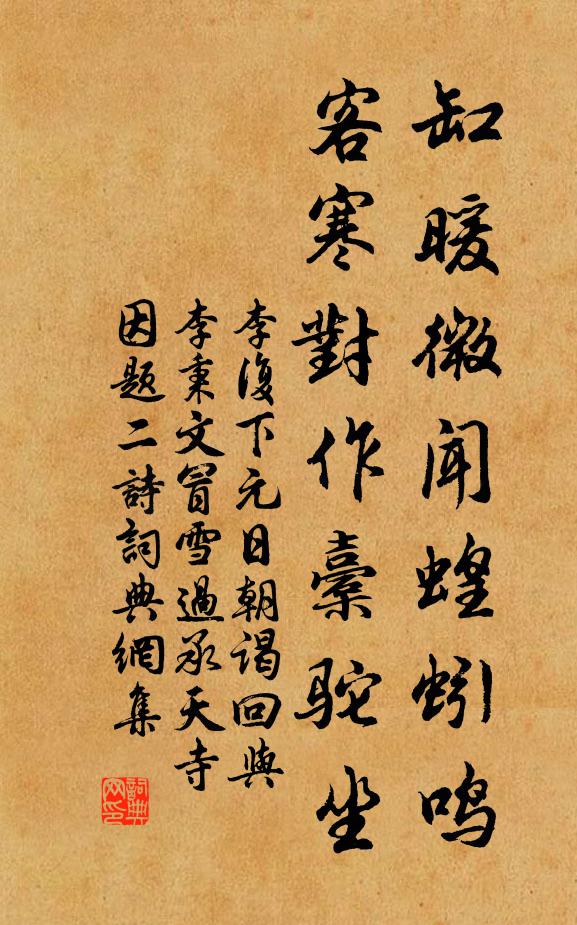 缸暖微闻蝗蚓鸣
客寒對作橐驼坐
李復下元日朝谒回與
李秉文冒雪過承天寺
因题二詩詞典網集
詞典
网印